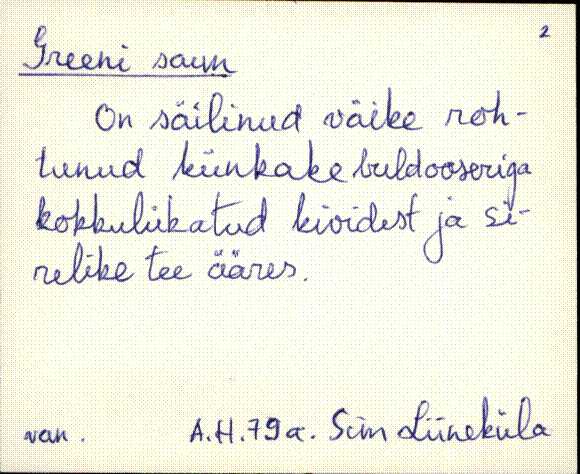 2
Greeni saun
On säilinud väike roh-
tunud künkake buldooseriga
kokkulükatud kividest ja si-
relike tee ääres.
van. A.H. 79 a. Sim Liiveküla